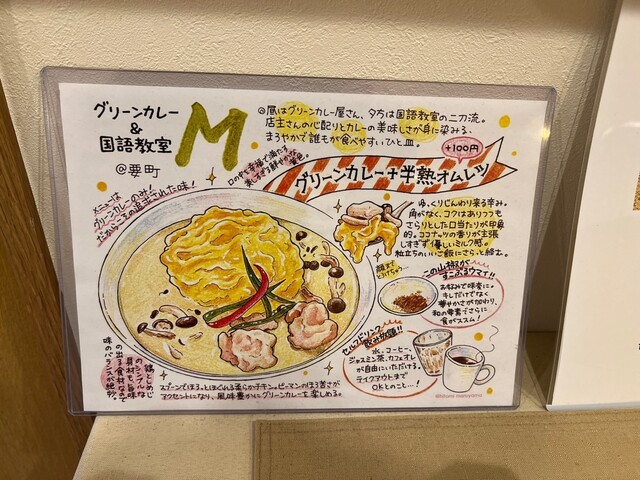 グリーンカレー
&
国語教室
@要町
M
@昼はグリーンカレー屋さん、夕方は国語教室の二刀流。
店主さんの心配りとカレーの美味しさが身に染みる、
まろやかで誰もが食べやすいひと皿。
+100円
グリーンカレー+半熟オムレツ
口の中を幸福で満たす
美しすぎる鮮やかな黄色。
メニューは
グリーンカレーのみ!
だからこその追求された味!
ゆっくりじんわり来る辛み。
角がなく、コクはありつつも
さらりとした口当たりが印象
的。ココナッツの香りが主張
しすぎず優しいミルク感。
粒立ちのいいご飯にさらっと絡む。
この山椒が
すこぶるウマイ!!
お好みで味変に。
辛しだけでなく
華やかさが加わり、
和の要素でさらに
食がススム!
セルフドリンク
飲み放題!!
水、コーヒー、
ジャスミン茶、カフェオレ
が自由にいただける。
テイクアウトまで
OKとのこと…!
鶏、しめじ
のシンプルな
具材も、旨味
の出る食材なので
味のバランスが絶妙。
スプーンでほろっとほぐれる柔らかチキン。ピーマンのほろ苦さが
アクセントになり、風味豊かにグリーンカレーを楽しめる。